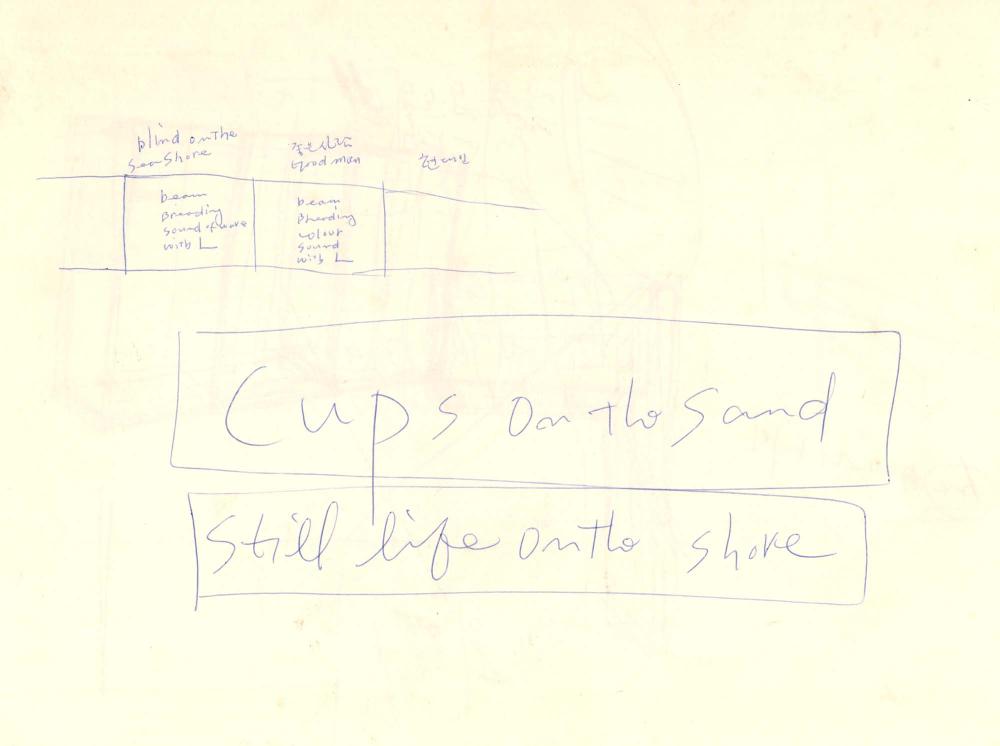 blind on the
Sea Shore
좋은사람
Good man
beam
Breading
sound of wave
with L
beam
Breading
colour
sound
with L
Cups on the sand
Still life on the shore